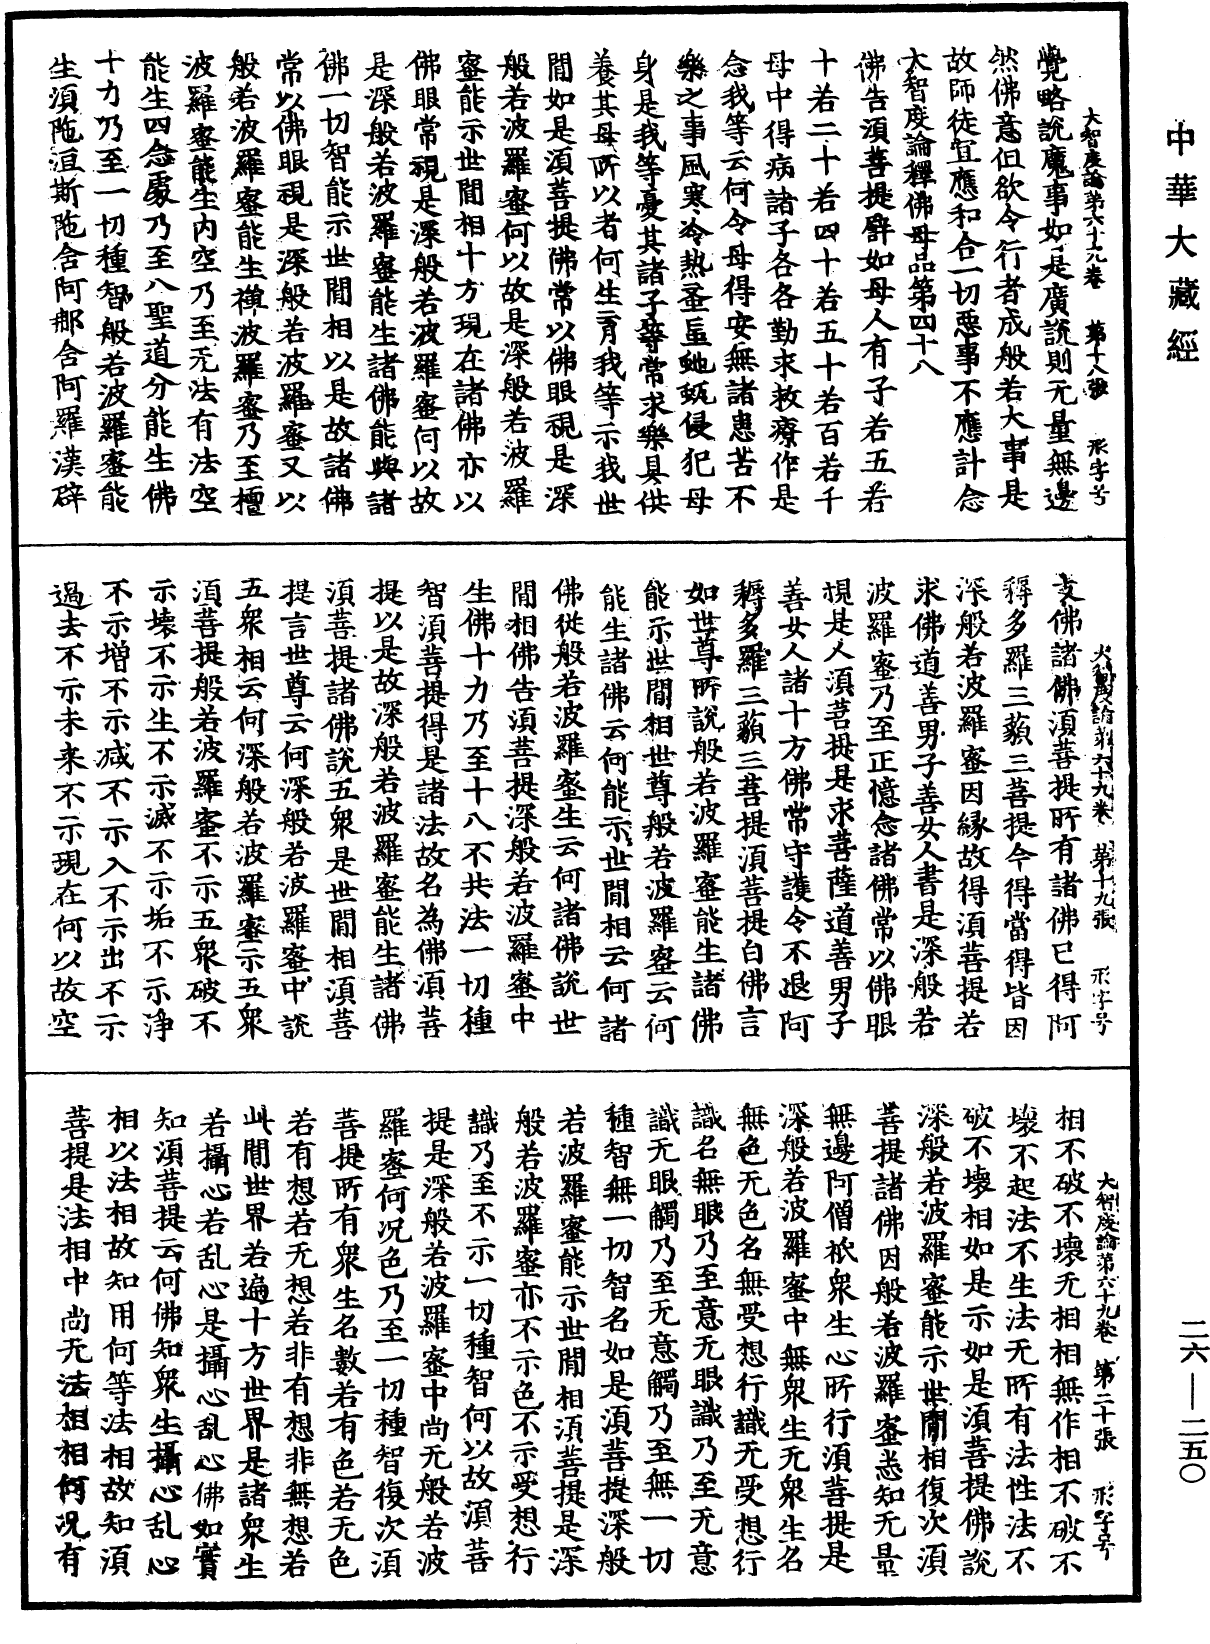 中華大藏經
大智度論第六十九卷　第十八張　形字号
覺略說魔事如是廣說則无量無邊
然佛意但欲令行者成般若大事是
故師徒宜應和合一切惡事不應計念
大智度論釋佛母品第四十八
佛告須菩提辟如母人有子若五若
十若二十若四十若五十若百若千
母中得病諸子各各勤求救療作是
念我等云何令母得安無諸患苦不
樂之事風寒冷熱蚤虱虵蚖侵犯母
身是我等憂其諸子等常求樂具供
養其母所以者何生育我等示我世
閒如是須菩提佛常以佛眼視是深
般若波羅蜜何以故是深般若波羅
蜜能示世閒相十方現在諸佛亦以
佛眼常視是深般若波羅蜜何以故
是深般若波羅蜜能生諸佛能與諸
佛一切智能示世閒相以是故諸佛
常以佛眼視是深般若波羅蜜又以
般若波羅蜜能生禪波羅蜜乃至檀
波羅蜜能生內空乃至无法有法空
能生四念處乃至八聖道分能生佛
十力乃至一切種智般若波羅蜜能
生須陁洹斯陁含阿那含阿羅漢辟
大智度論第六十九卷　第十九張　形字号
支佛諸佛須菩提所有諸佛已得阿
耨多羅三藐三菩提今得當得皆因
深般若波羅蜜因緣故得須菩提若
求佛道善男子善女人書是深般若
波羅蜜乃至正憶念諸佛常以佛眼
視是人須菩提是求菩薩道善男子
善女人諸十方佛常守護令不退阿
耨多羅三藐三菩提須菩提白佛言
如世尊所說般若波羅蜜能生諸佛
能示世閒相世尊般若波羅蜜云何
能生諸佛云何能示世閒相云何諸
佛從般若波羅蜜生云何諸佛說世
閒相佛告須菩提深般若波羅蜜中
生佛十力乃至十八不共法一切種
智須菩提得是諸法故名為佛須菩
提以是故深般若波羅蜜能生諸佛
須菩提諸佛說五眾是世閒相須菩
提言世尊云何深般若波羅蜜中說
五眾相云何深般若波羅蜜示五眾
須菩提般若波羅蜜不示五眾破不
示壞不示生不示滅不示垢不示淨
不示增不示減不示入不示出不示
過去不示未來不示現在何以故空
大智度論第六十九卷　第二十張　形字号
相不破不壞无相相無作相不破不
壞不起法不生法无所有法性法不
破不壞相如是示如是須菩提佛說
深般若波羅蜜能示世閒相復次須
菩提諸佛因般若波羅蜜悉知无量
無邊阿僧衹眾生心所行須菩提是
深般若波羅蜜中無眾生无眾生名
無色无色名無受想行識无受想行
識名無眼乃至意无眼識乃至无意
識无眼觸乃至无意觸乃至無一切
種智無一切智名如是須菩提深般
若波羅蜜能示世閒相須菩提是深
般若波羅蜜亦不示色不示受想行
識乃至不示一切種智何以故須菩
提是深般若波羅蜜中尚无般若波
羅蜜何况色乃至一切種智復次須
菩提所有眾生名數若有色若无色
若有想若无想若非有想非無想若
此閒世界若遍十方世界是諸眾生
若攝心若乱心是攝心乱心佛如實
知須菩提云何佛知眾生攝心乱心
相以法相故知用何等法相故知須
菩提是法相中尚无法相相何况有
二六—二五〇